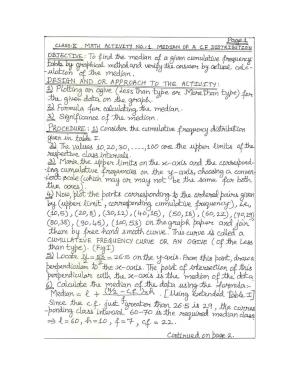 Page 1
CLASS-X MATH ACTIVITY NO.-1. MEDIAN OF A C.F. DISTRIBUTION
OBJECTIVE:- To find the median of a given cumulative frequency
table by graphical method and verify the answer by actual calc-
ulation of the median.
DESIGN AND OR APPROACH TO THE ACTIVITY:
1) Plotting an ogive (Less than type or More than type) for
the given data on the graph.
2) Formula for calculating the median.
3) Significance of the median.
PROCEDURE: 1) Consider the cumulative frequency distribution
given in table I.
2) The values 10, 20, 30, ....., 100 are the upper limits of the
respective class intervals.
3) Mark the upper limits on the x-axis and the correspond-
ing cumulative frequencies on the y-axis, choosing a conven-
ient scale (which may or may not be the same for both
the axes).
4) Now plot the points corresponding to the ordered pairs given
by (upper limit, corresponding cumulative frequency), i.e.,
(10,5), (20,8), (30,12), (40,15), (50,18), (60,22), (70,29)
(80,38), (90,45), (100,53) on the graph papers and join
them by free hand smooth curve. This curve is called a
CUMULATIVE FREQUENCY CURVE OR AN OGIVE (of the Less
than type). (Fig I)
5) Locate N/2 = 53/2 = 26.5 on the y-axis. From this point, draw a
perpendicular to the x-axis. The point of intersection of this
perpendicular with the x-axis is the median of the data
6) Calculate the median of the data using the formula:-
Median = l + (N/2 - C.F.)/f x h . [Using Extended Table I]
Since the c.f. just greater than 26.5 is 29, the corres-
-ponding class interval 60-70 is the required median class
⇒ l = 60, h = 10, f = 7, c.f. = 22.
Continued on page 2.